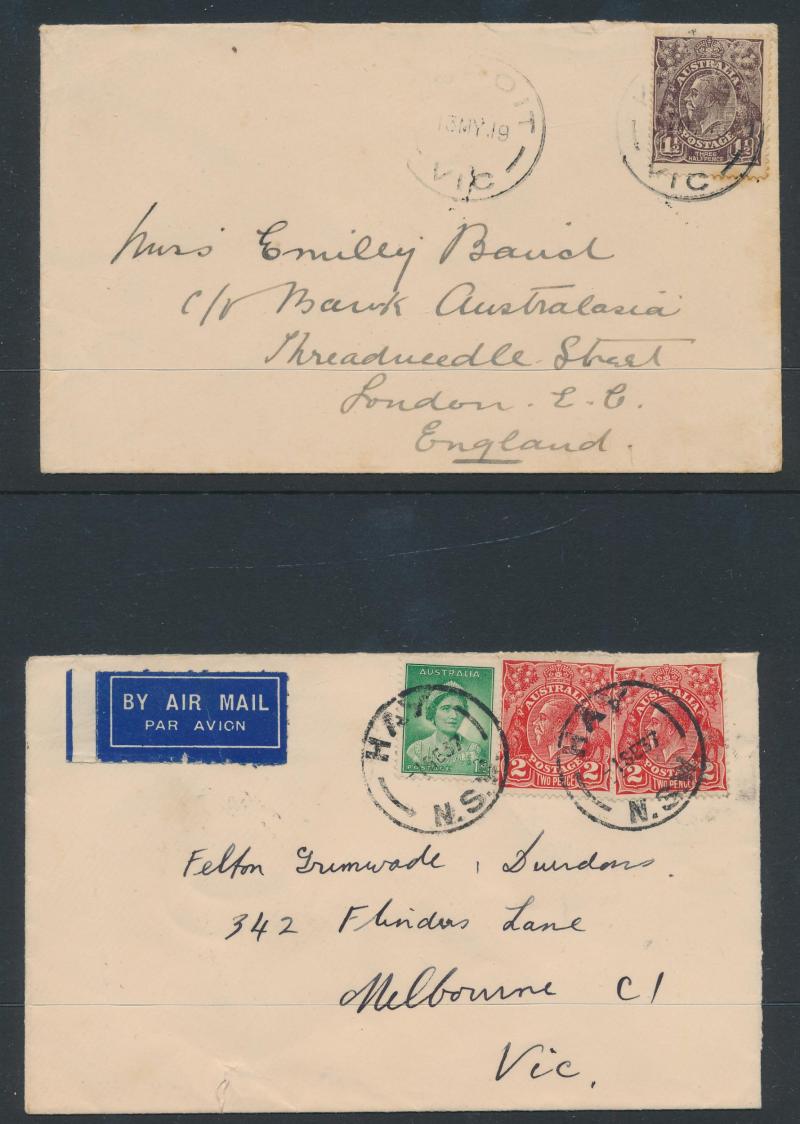 OIT
13MY.19
VIC
AUSTRALIA
POSTAGE
1½ THREE HALFPENCE 1½
VIC
Miss Emilly Baird
c/o Bank Australasia
Threadneedle Street
London. E. C.
England.
BY AIR MAIL
PAR AVION
AUSTRALIA
POSTAGE
HAY
-1SE37
N.S.W
AUSTRALIA
POSTAGE
2 TWO PENCE 2
AUSTRALIA
POSTAGE
2 TWO PENCE 2
HAY
-1SE37
N.S.W
Felton Grimwade, Duerdins.
342 Flinders Lane
Melbourne C1
Vic.